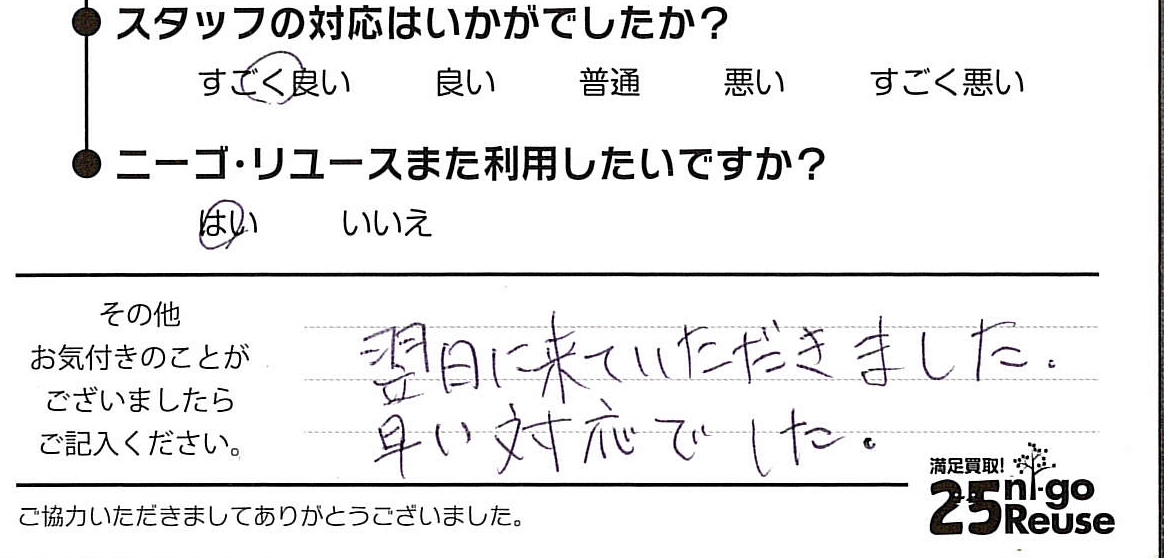 スタッフの対応はいかがでしたか？
すごく良い 良い 普通 悪い すごく悪い
ニーゴ・リユースまた利用したいですか？
はい いいえ
その他
お気付きのことが
ございましたら
ご記入ください。
翌日に来ていただきました。
早い対応でした。
満足買取!
25 ni-go
Reuse
ご協力いただきましてありがとうございました。